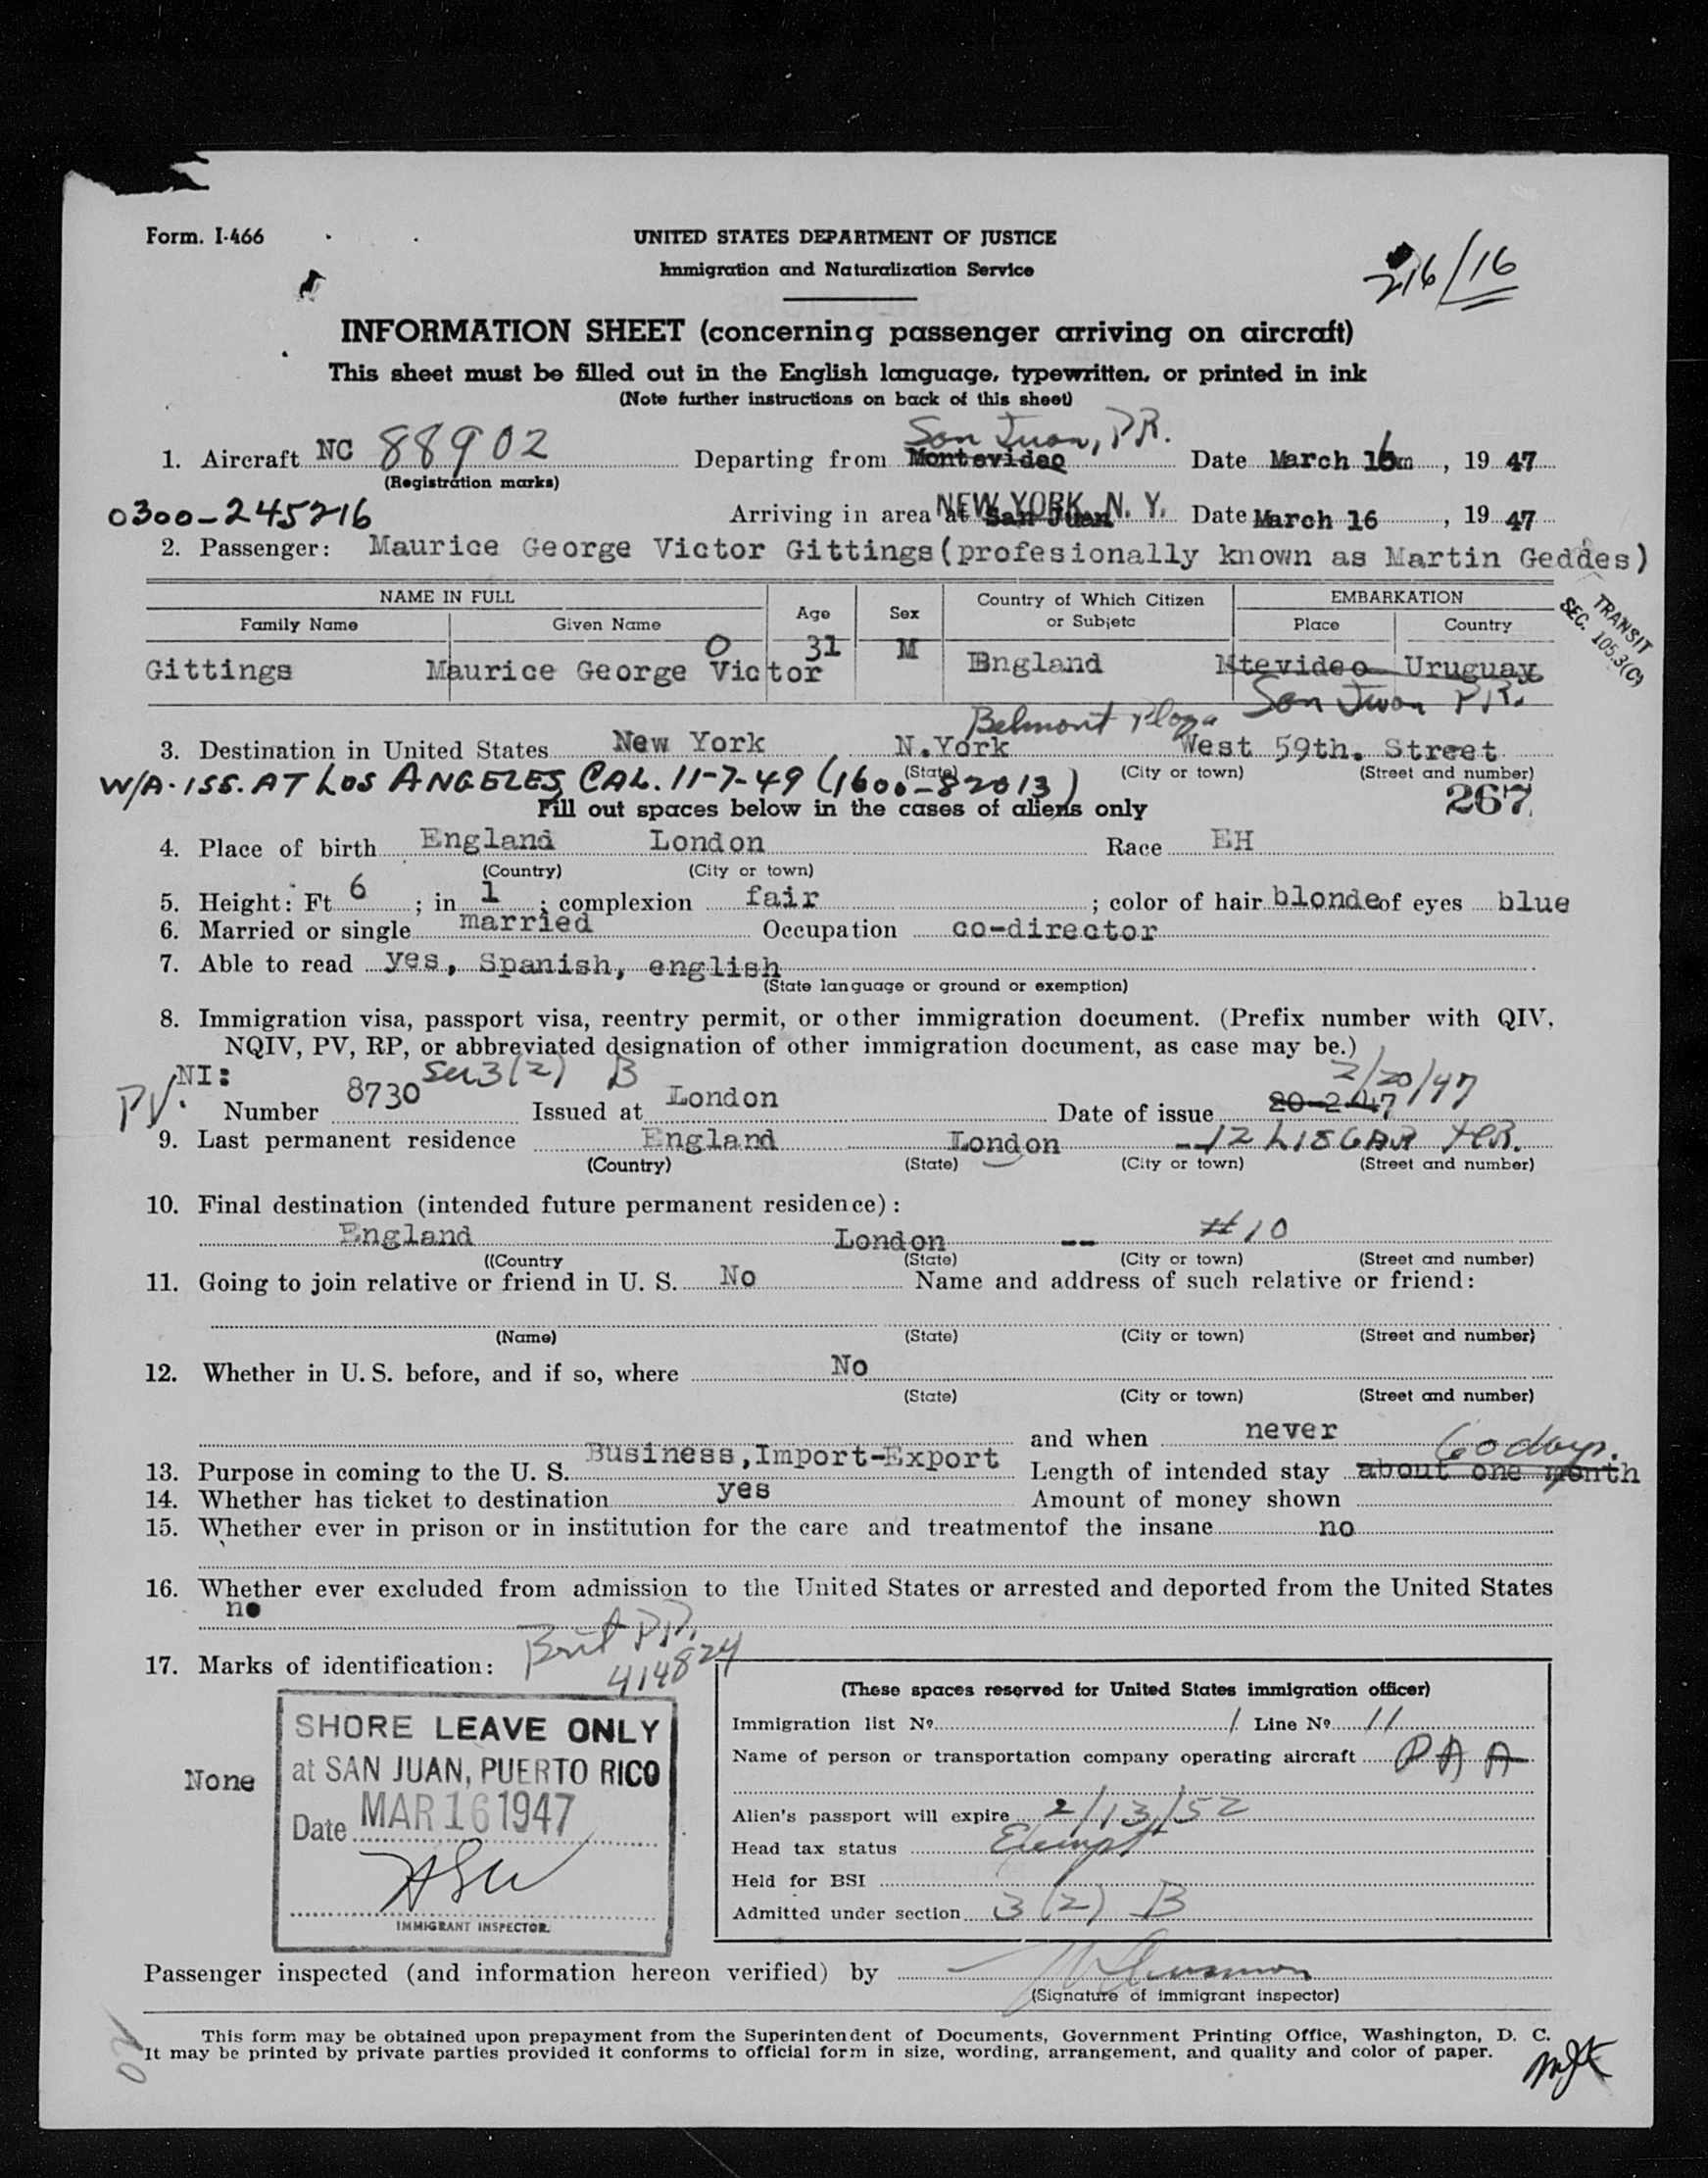 Form. I-466
UNITED STATES DEPARTMENT OF JUSTICE
Immigration and Naturalization Service
216/16
INFORMATION SHEET (concerning passenger arriving on aircraft)
This sheet must be filled out in the English language, typewritten, or printed in ink
(Note further instructions on back of this sheet)
San Juan, P.R.
1. Aircraft NC 88902 Departing from Montevideo Date March 16 , 19 47
(Registration marks)
0300-245216 Arriving in area at San Juan NEW YORK, N. Y. Date March 16 , 19 47
2. Passenger: Maurice George Victor Gittings(profesionally known as Martin Geddes)
TRANSIT
SEC. 105.3(C)
NAME IN FULL Age Sex Country of Which Citizen or Subjetc EMBARKATION
Family Name Given Name Place Country
Gittings Maurice George Victor O 31 M England Mtevideo Uruguay
San Juan P.R.
Belmont Plaza
3. Destination in United States New York N.York West 59th. Street
(State) (City or town) (Street and number)
W/A. ISS. AT LOS ANGELES, CAL. 11-7-49 (1600-82013)
267
Fill out spaces below in the cases of aliens only
4. Place of birth England London Race EH
(Country) (City or town)
5. Height: Ft 6 ; in 1 ; complexion fair ; color of hair blonde of eyes blue
6. Married or single married Occupation co-director
7. Able to read yes, Spanish, english
(State language or ground or exemption)
8. Immigration visa, passport visa, reentry permit, or other immigration document. (Prefix number with QIV,
NQIV, PV, RP, or abbreviated designation of other immigration document, as case may be.)
NI: Sec 3(2) B 2/20/47
PV. Number 8730 Issued at London Date of issue 20-2-47
9. Last permanent residence England London --12 LISGAR TER.
(Country) (State) (City or town) (Street and number)
10. Final destination (intended future permanent residence):
England London -- #10
((Country (State) (City or town) (Street and number)
11. Going to join relative or friend in U. S. No Name and address of such relative or friend:
(Name) (State) (City or town) (Street and number)
12. Whether in U. S. before, and if so, where No
(State) (City or town) (Street and number)
and when never
60 days.
13. Purpose in coming to the U. S. Business,Import-Export Length of intended stay about one month
14. Whether has ticket to destination yes Amount of money shown
15. Whether ever in prison or in institution for the care and treatmentof the insane no
16. Whether ever excluded from admission to the United States or arrested and deported from the United States
no
Brit P.P.
414824
17. Marks of identification:
None
SHORE LEAVE ONLY
at SAN JUAN, PUERTO RICO
Date MAR 16 1947
IMMIGRANT INSPECTOR.
(These spaces reserved for United States immigration officer)
Immigration list No. 1 Line No. 11
Name of person or transportation company operating aircraft PAA
Alien's passport will expire 2/13/52
Head tax status Exempt
Held for BSI
Admitted under section 3(2) B
Passenger inspected (and information hereon verified) by
(Signature of immigrant inspector)
This form may be obtained upon prepayment from the Superintendent of Documents, Government Printing Office, Washington, D. C.
It may be printed by private parties provided it conforms to official form in size, wording, arrangement, and quality and color of paper.